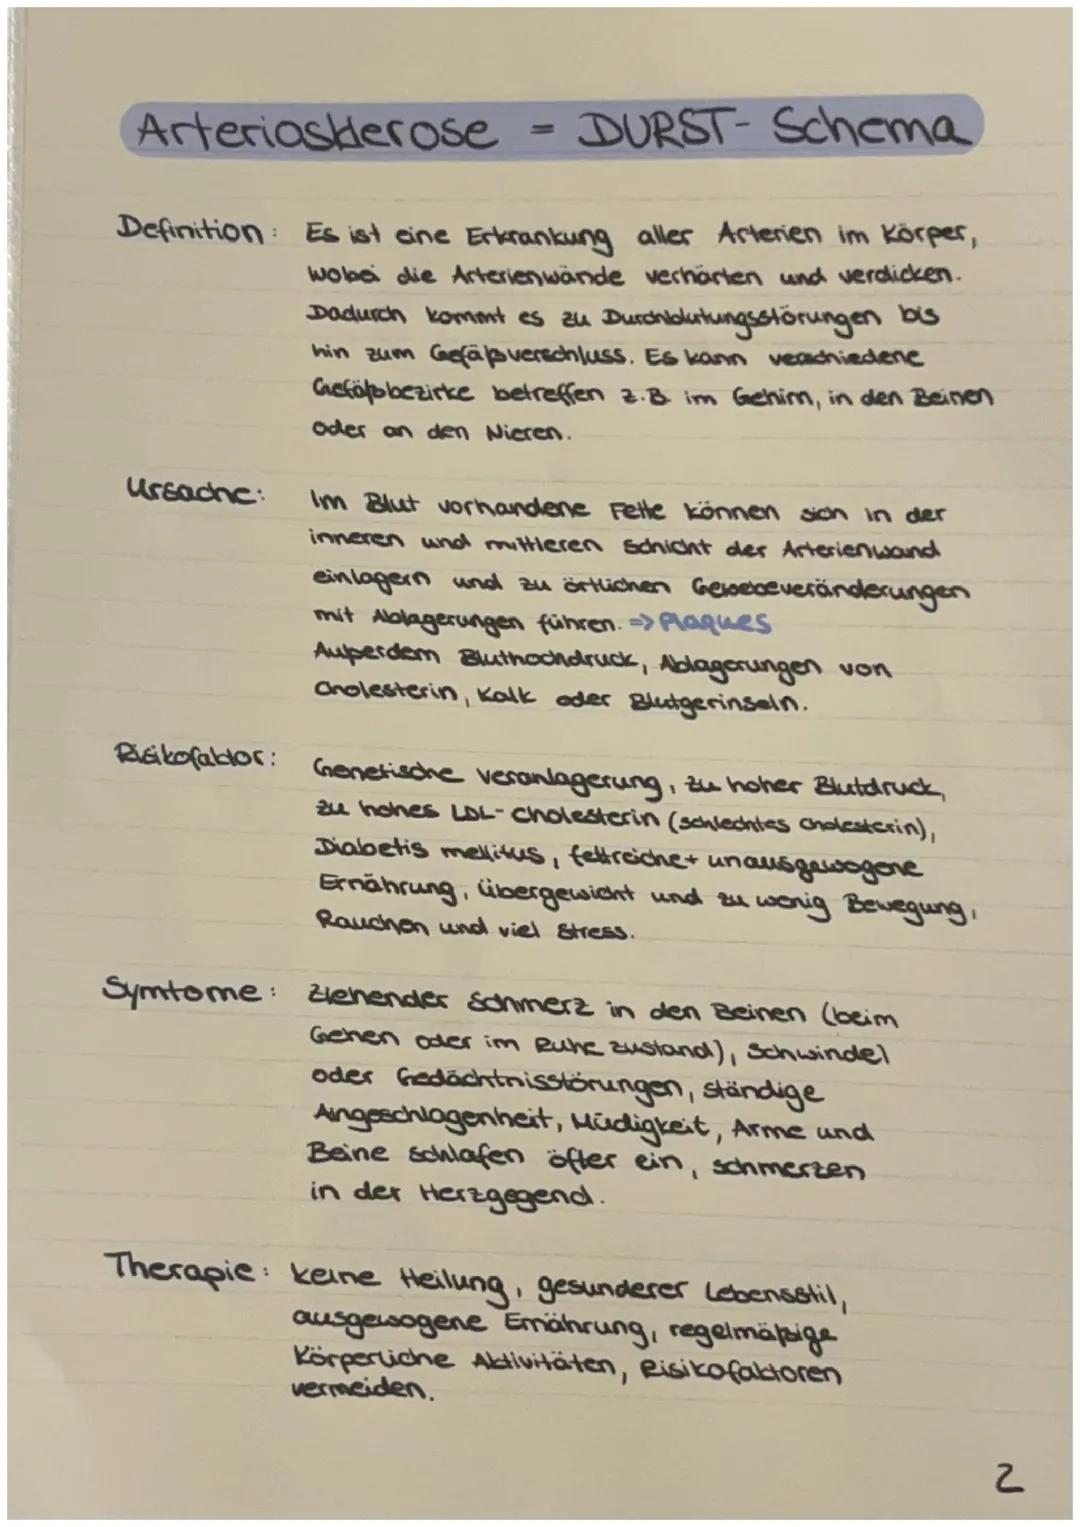 Arteriosklerose = DURST-Schema
Definition: Es ist eine Erkrankung aller Arterien im Körper,
wobei die Arterienwände verhärten und verdicken.
Dadurch kommt es zu Durchblutungsstörungen bis
hin zum Gefäßverschluss. Es kann verschiedene
Gefäßbezirke betreffen z.B. im Gehirn, in den Beinen
oder an den Nieren.
Ursache: Im Blut vorhandene Fette können sich in der
inneren und mittleren Schicht der Arterienwand
einlagern und zu örtlichen Gewebeveränderungen
mit Ablagerungen führen. => Plaques
Außerdem Bluthochdruck, Ablagerungen von
Cholesterin, Kalk oder Blutgerinseln.
Risikofaktor: Genetische Veranlagerung, zu hoher Blutdruck,
zu hohes LDL-Cholesterin (schlechtes Cholesterin),
Diabetis mellitus, fettreiche + unausgewogene
Ernährung, Übergewicht und zu wenig Bewegung,
Rauchen und viel Stress.
Symtome: Ziehender Schmerz in den Beinen (beim
Gehen oder im Ruhe zustand), Schwindel
oder Gedächtnisstörungen, ständige
Angeschlagenheit, Müdigkeit, Arme und
Beine schlafen öfter ein, schmerzen
in der Herzgegend.
Therapie: keine Heilung, gesunderer Lebensstil,
ausgewogene Ernährung, regelmäßige
Körperliche Aktivitäten, Risikofaktoren
vermeiden.
2